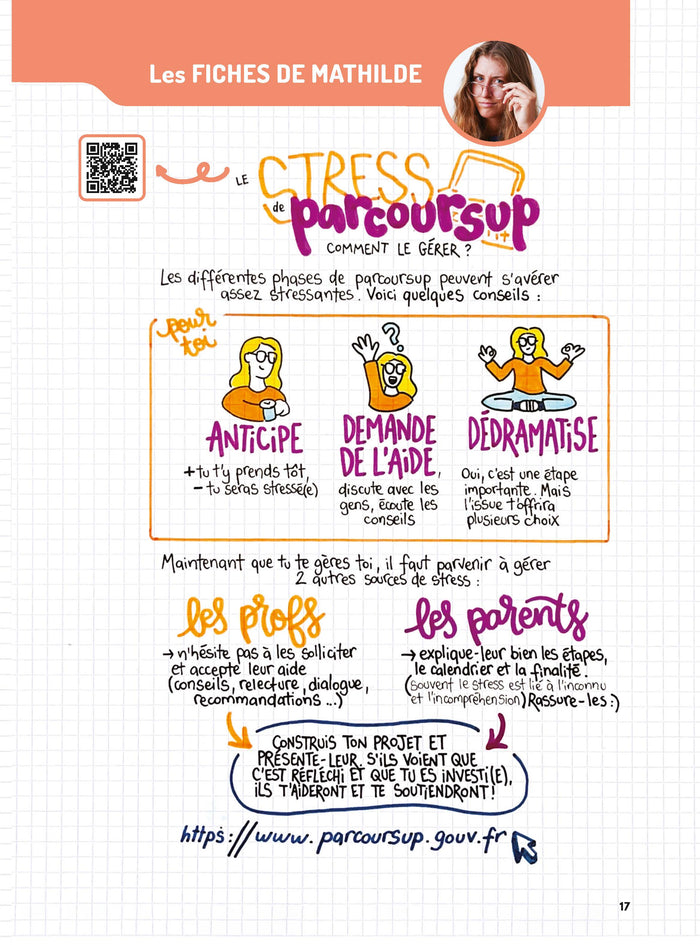 Les FICHES DE MATHILDE
LE STRESS
de parcoursup
COMMENT LE GÉRER ?
Les différentes phases de parcoursup peuvent s'avérer
assez stressantes. Voici quelques conseils :
pour
toi
ANTICIPE
+ tu t'y prends tôt,
- tu seras stressé(e)
?
DEMANDE
DE L'AIDE,
discute avec les
gens, écoute les
conseils
DÉDRAMATISE
Oui, c'est une étape
importante. Mais
l'issue t'offrira
plusieurs choix
Maintenant que tu te gères toi, il faut parvenir à gérer
2 autres sources de stress :
les profs
→ n'hésite pas à les solliciter
et accepte leur aide
(conseils, relecture, dialogue,
recommandations ...)
les parents
→ explique-leur bien les étapes,
le calendrier et la finalité.
(souvent le stress est lié à l'inconnu
et l'incompréhension) Rassure-les :)
CONSTRUIS TON PROJET ET
PRÉSENTE-LEUR. S'ILS VOIENT QUE
C'EST RÉFLÉCHI ET QUE TU ES INVESTI(E),
ILS T'AIDERONT ET TE SOUTIENDRONT !
https://www.parcoursup.gouv.fr
17